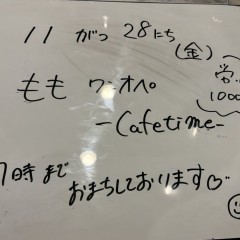 11 がつ 28にち
(金)
1000
もも ワンオペ
-Cafetime-
7時まで
おまちしております♡